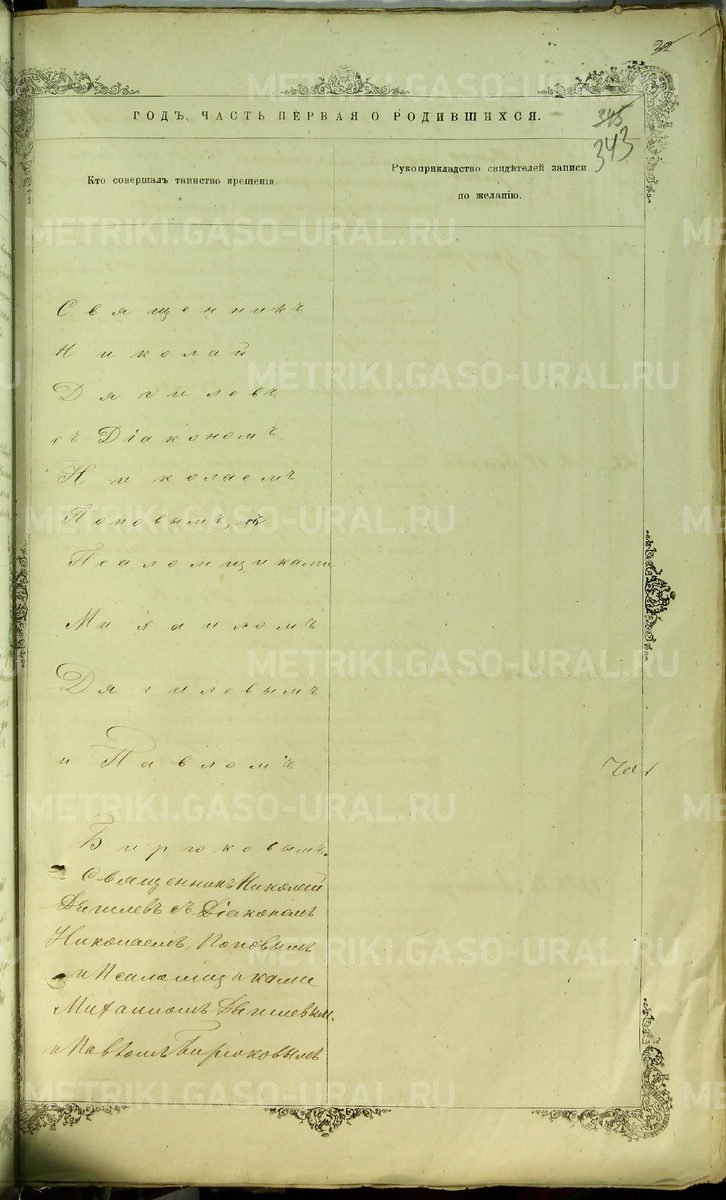 32
ГОДЪ, ЧАСТЬ ПЕРВАЯ О РОДИВШИХСЯ.
345
343
Кто совершалъ таинство крещенія.
Рукоприкладство свидѣтелей записи
по желанію.
Священникъ
Николай
Дягилевъ
съ Діакономъ
Николаемъ
Поповымъ, и
Псаломщиками
Михаиломъ
Дягилевымъ
и Павломъ
Бирюковымъ.
Священникъ Николай
Дягилевъ съ Діакономъ
Николаемъ Поповымъ
и Псаломщиками
Михаиломъ Дягилевым.
и Павломъ Бирюковымъ
METRIKI.GASO-URAL.RU
METRIKI.GASO-URAL.RU
METRIKI.GASO-URAL.RU
METRIKI.GASO-URAL.RU
METRIKI.GASO-URAL.RU
METRIKI.GASO-URAL.RU
METRIKI.GASO-URAL.RU
METRIKI.GASO-URAL.RU